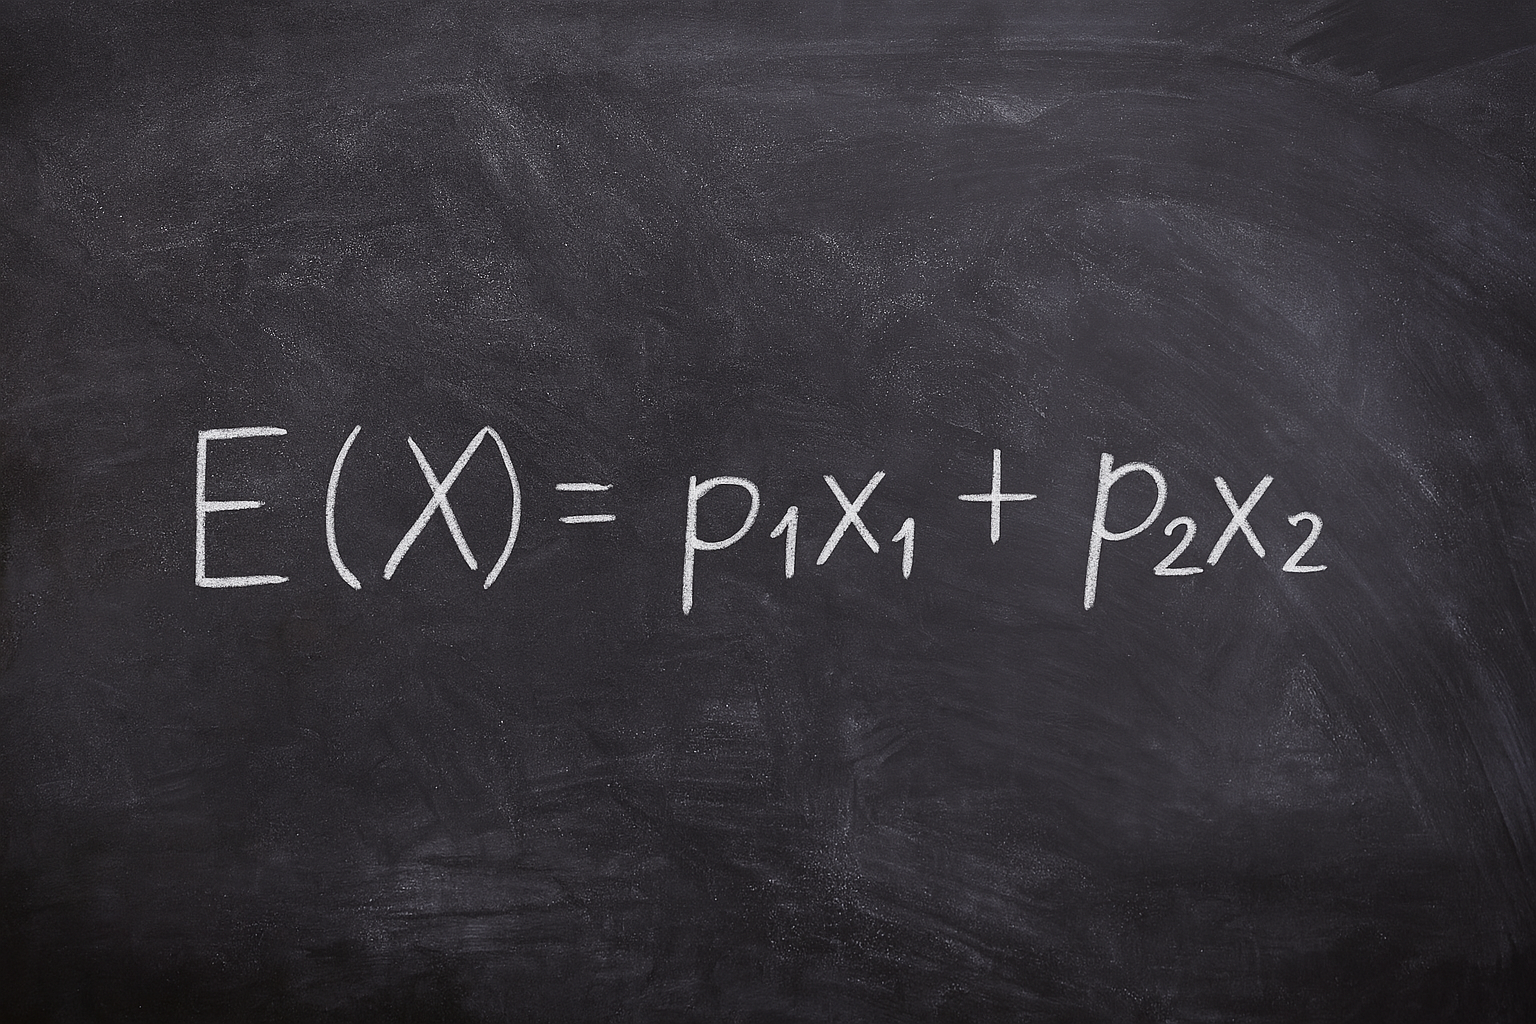 E(X) = p₁x₁ + p₂x₂